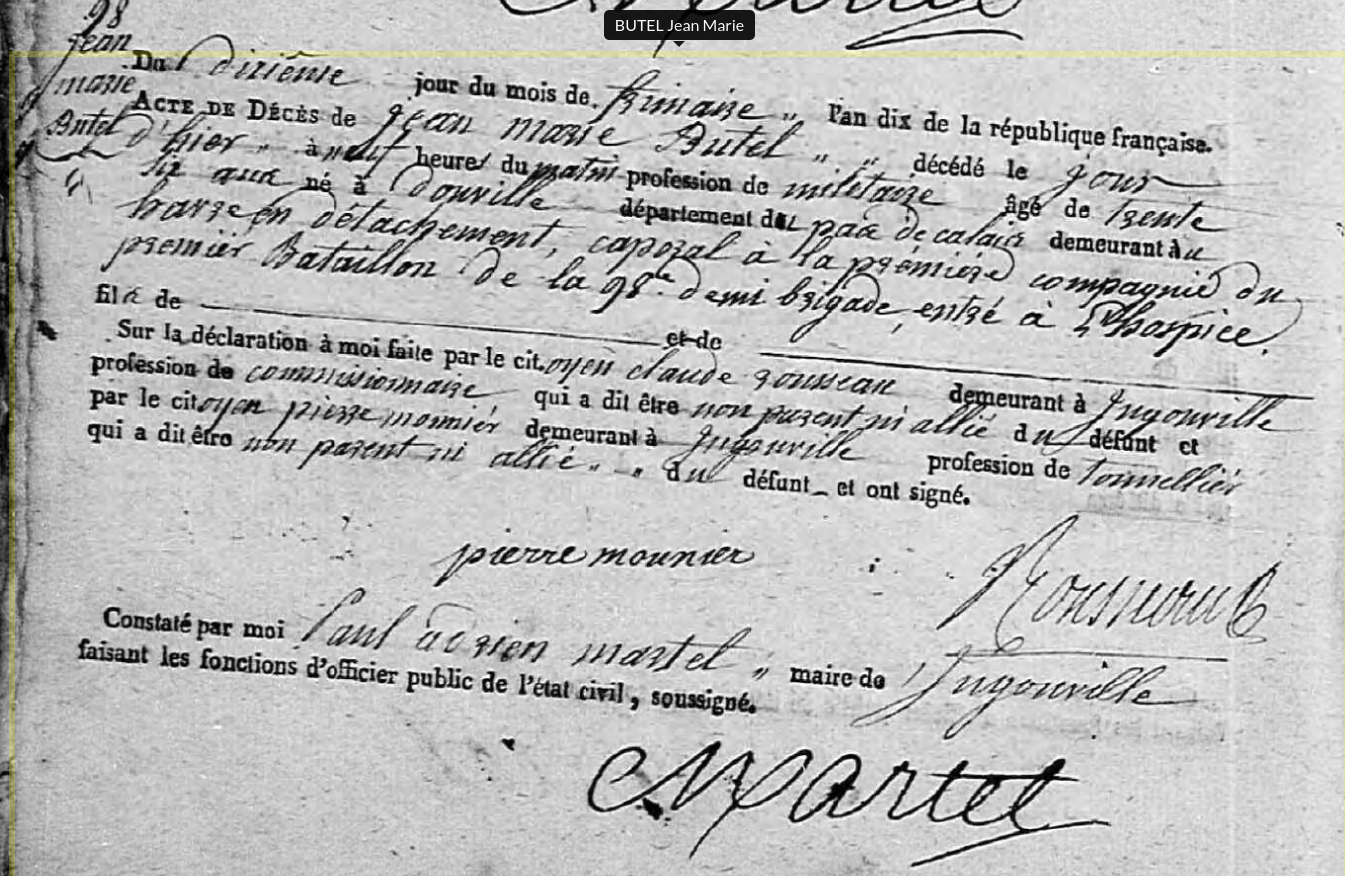 BUTEL Jean Marie
98
jean
marie
Butel
Du dixiême jour du mois de frimaire " l'an dix de la république française.
ACTE DE DÉCÈS de jean marie Butel " " décédé le jour
d'hier " à neuf heures du matin profession de militaire âgé de trente
six ans né à douville département du pas de calais demeurant au
havre en détachement, caporal à la première compagnie du
premier Bataillon de la 98e demi brigade, entré à L'hospice.
fils de et de
Sur la déclaration à moi faite par le citoyen claude rousseau demeurant à Ingouville
profession de commissionnaire qui a dit être non parent ni allié du défunt et
par le citoyen pierre monnier demeurant à Ingouville profession de tonnellier
qui a dit être non parent ni allié " " du défunt et ont signé.
pierre mounier
Rousseau
Constaté par moi Paul adrien martel " maire de Ingouville
faisant les fonctions d'officier public de l'état civil, soussigné.
Martel